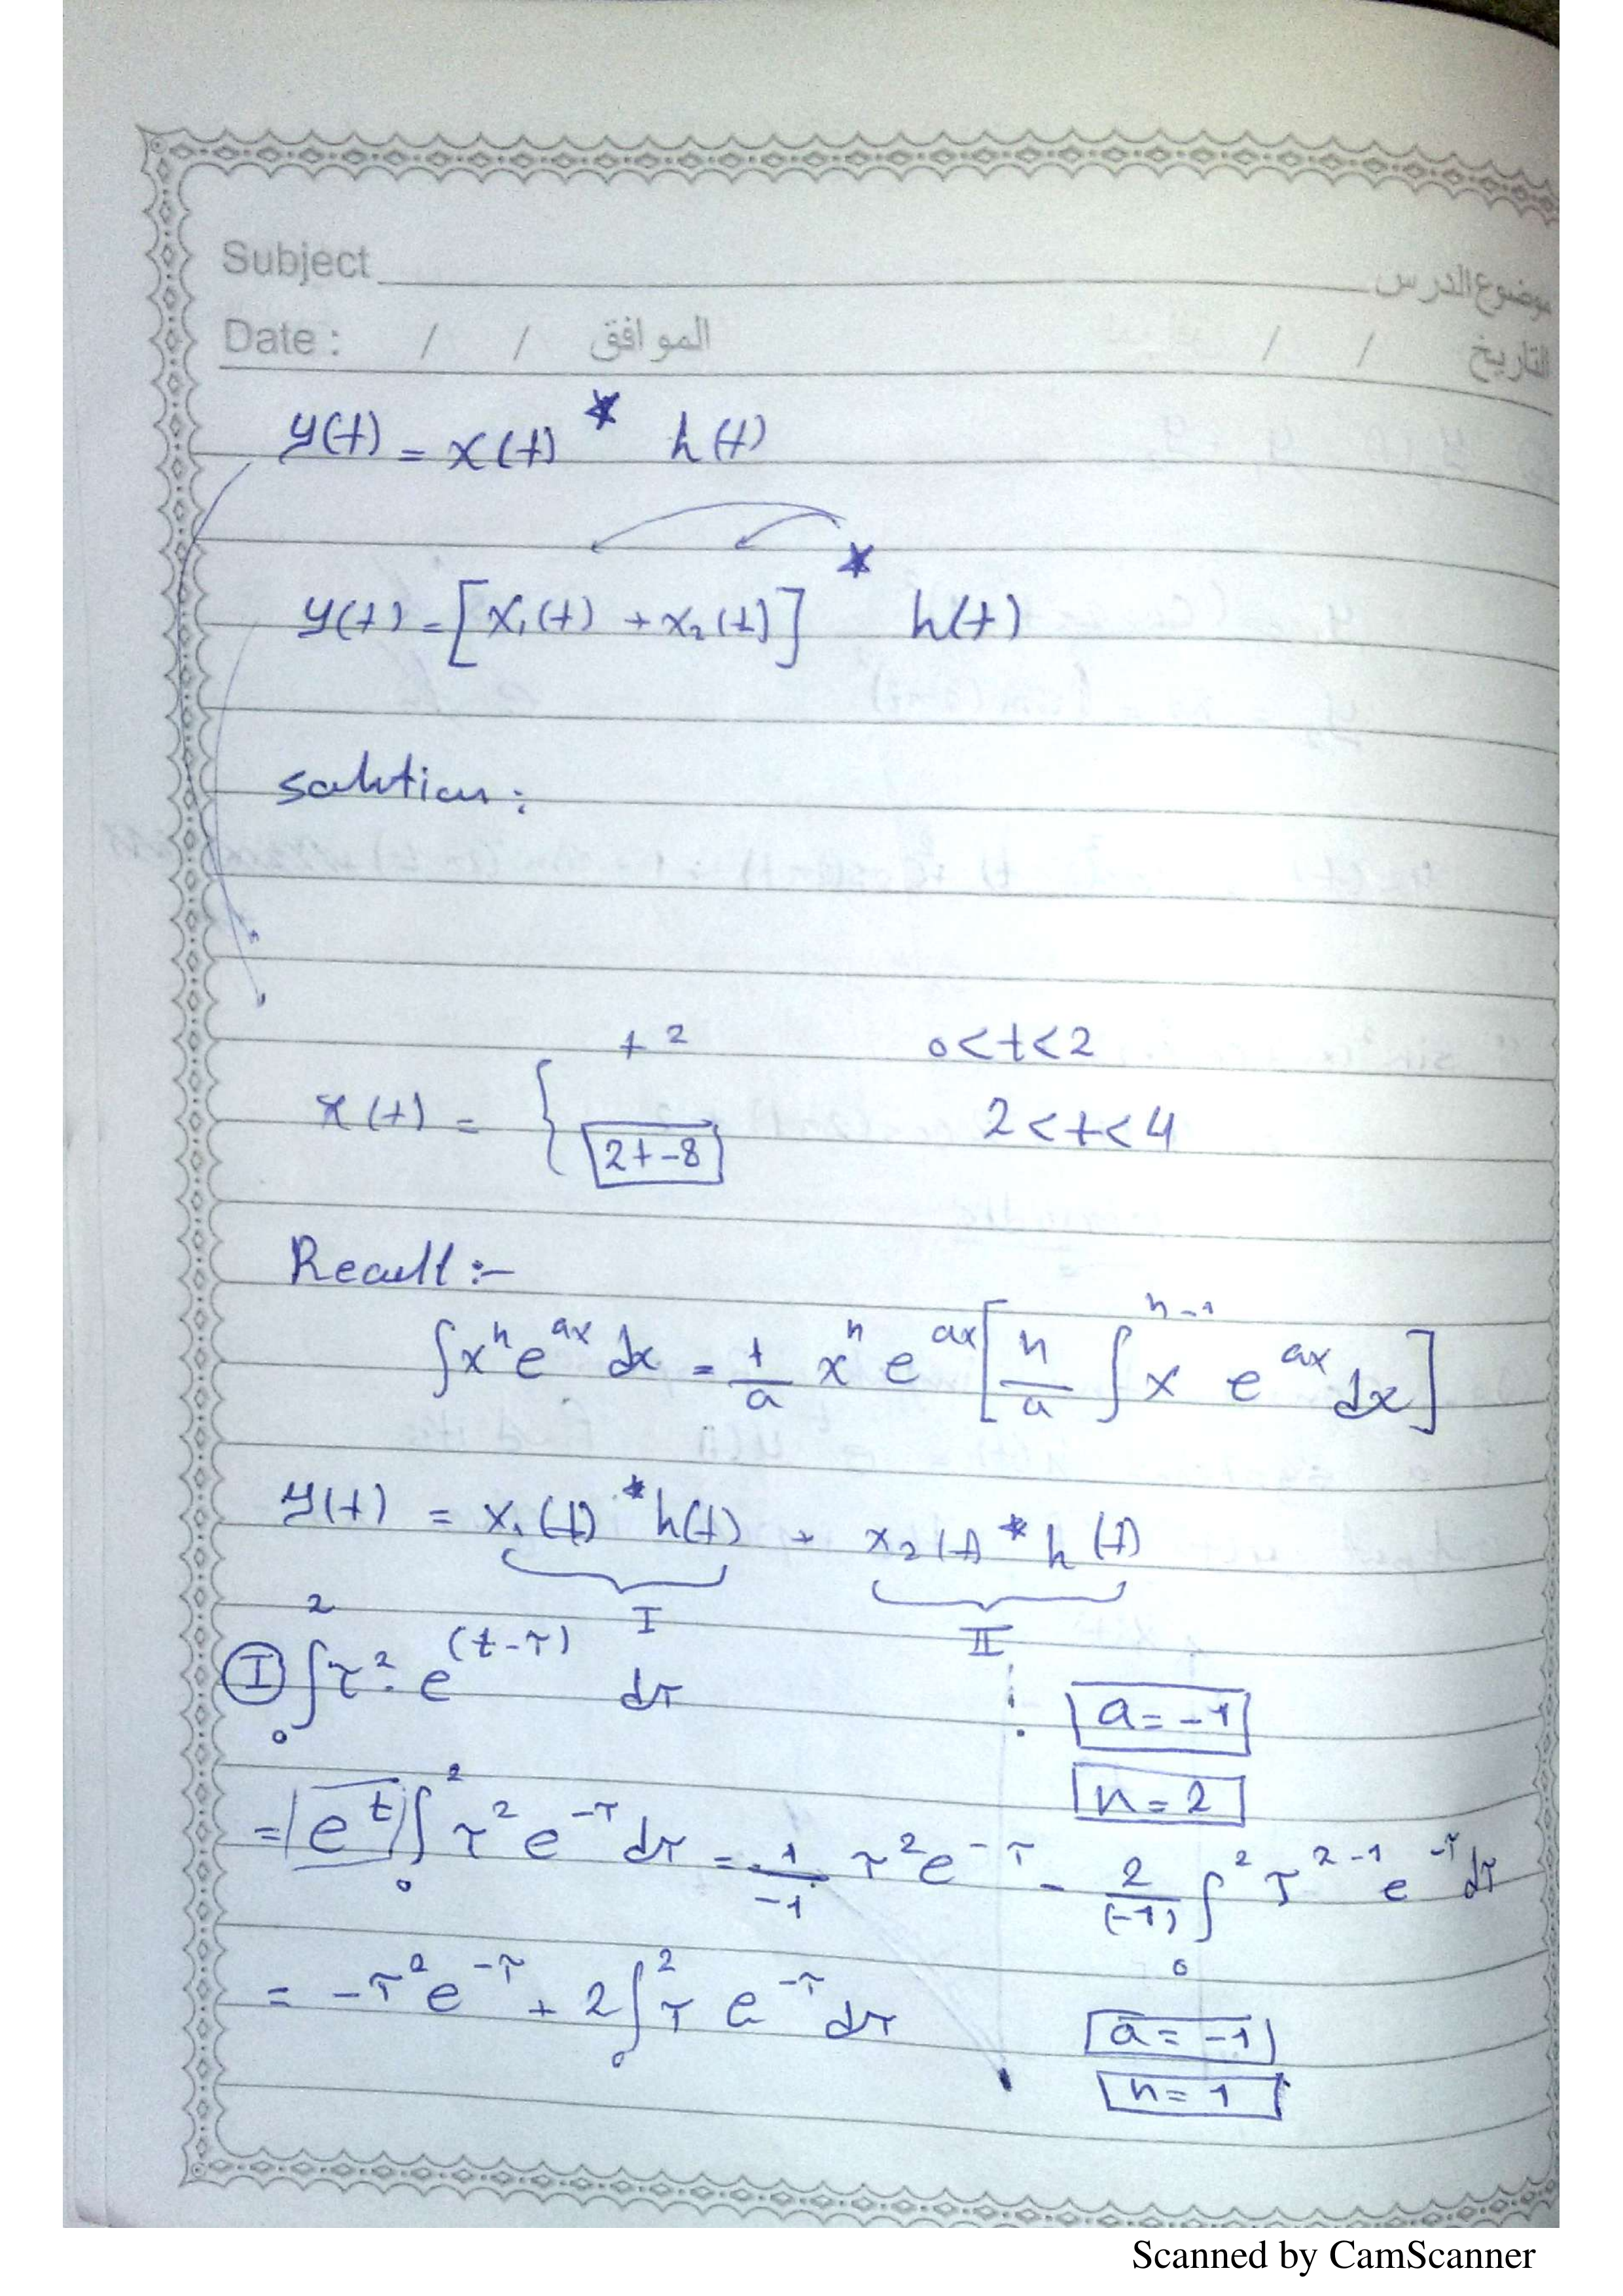 Subject موضوع الدرس
Date : / / الموافق / / التاريخ
y(t) = x(t) * h(t)
y(t) = [x₁(t) + x₂(t)] * h(t)
solution:
x(t) = { t² 0<t<2
2t-8 2<t<4
Recall :-
∫xⁿe^ax dx = 1/a xⁿ e^ax [n/a ∫x^n-1 e^ax dx]
y(t) = x₁(t) * h(t) + x₂(t) * h(t)
I II
I ∫₀² τ² · e^(t-τ) dτ a = -1
n = 2
= e^t ∫₀² τ² e^-τ dτ = 1/-1 τ² e^-τ - 2/(-1) ∫₀² τ^2-1 e^-τ dτ
= -τ² e^-τ + 2∫₀² τ e^-τ dτ a = -1
n = 1
Scanned by CamScanner